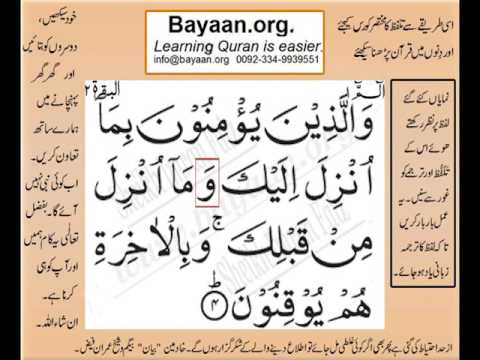 Bayaan.org.
Learning Quran is easier.
info@bayaan.org 0092-334-9939551
اسی طریقے سے تلفظ کا مختصر کورس کیجئے
اور دنوں میں قرآن پڑھنا سیکھئے
الٓمّٓ ١
البقرة ٢
وَالَّذِيْنَ يُؤْمِنُوْنَ بِمَآ
اُنْزِلَ اِلَيْكَ وَ مَآ اُنْزِلَ
مِنْ قَبْلِكَ ۚ وَبِالْاٰخِرَةِ
هُمْ يُوْقِنُوْنَ ؕ ۴
نمایاں کئے گئے
لفظ پر نظر رکھتے
ھوئے اس کے
تلفظ اور ترجمے کو
غور سے سنیں۔ یہ
عمل بار بار کریں
تاکہ لفظ کا ترجمہ
زبانی یاد ہو جائے۔
خود سیکھیں،
دوسروں کو بتائیں
اور گھر گھر
پہنچانے میں
ہمارے ساتھ
تعاون کریں۔
اب کوئی نبی نہیں
آئے گا۔ بفضل
تعالٰی یہ کام ہم
اور آپ کو ہی
کرنا ہے۔
ان شاء اللہ۔
ازحد احتیاط کی گئی ہے پھر بھی اگر کوئی غلطی مل جائے تو اطلاع دینے والے کے شکر گزار ہوں گے۔ خادمین "بیان" بیگم و شیخ عمران فیض۔